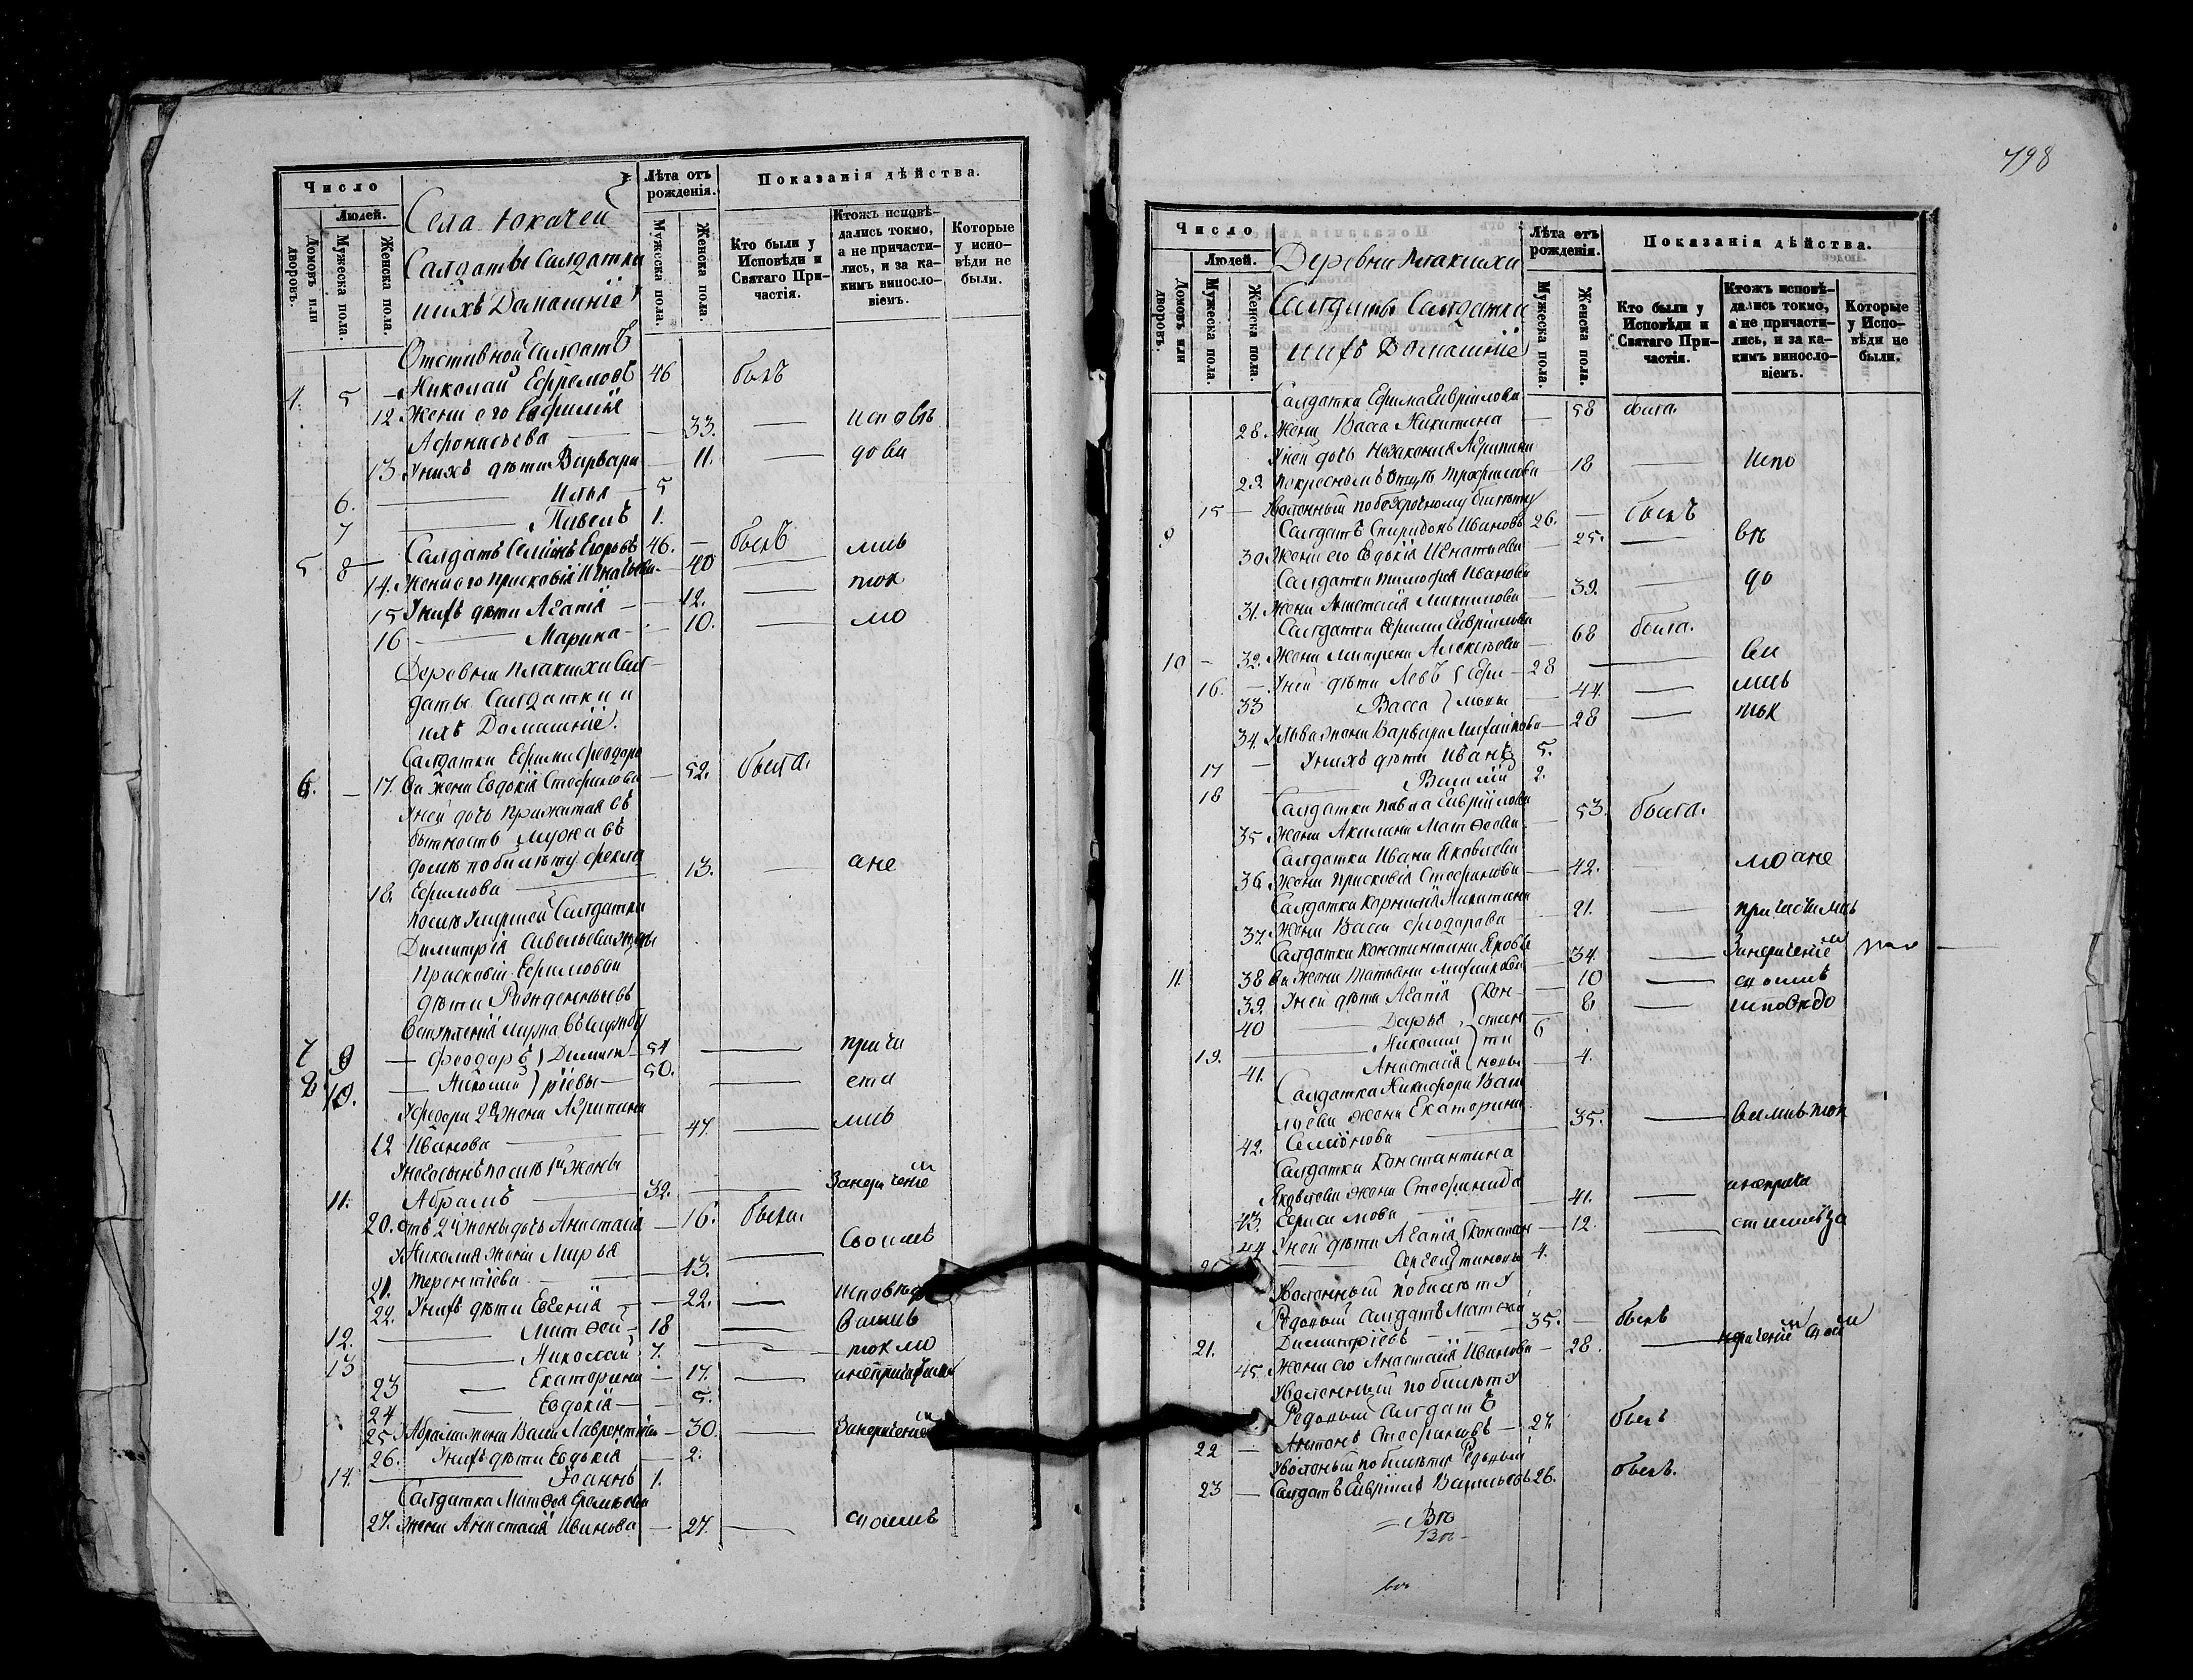 Число
Людей.
Домовъ или дворовъ.
Мужеска пола.
Женска пола.
Села Юкачей
Салдаты Салдатки
ихъ Домашніе
Лѣта отъ рожденія.
Мужеска пола.
Женска пола.
Показанія дѣйства.
Кто были у Исповѣди и Святаго Причастія.
Ктожъ исповѣдались токмо, а не причастились, и за какимъ винословіемъ.
Которые у исповѣди не были.
Отставной Салдатъ
4. 5 — Николай Ефремовъ 46 былъ
12 Жена его Евфимія
Афонасьева — 33. — исповѣ
13 У нихъ дѣти Варвара — 11. — дова
6. — Илья — 5
7 — Павелъ 1.
5 8 — Салдатъ Семенъ Егоровъ 46. — былъ лись
14. Жена его Прасковія Игнатьева — 40 —
15 У нихъ дѣти Агапія — 12. — ток
16 — Марина — 10. — мо
Деревни Плакшихи Сал-
даты Салдатки и
ихъ Домашніе.
Салдатки Ефима Феодоро
6. — 17. ва жена Евдокія Стефанова — 52. была.
У ней дочь прижитая въ
бытность мужа въ
домѣ по билѣту Фекла
18. Ефимова — 13. — ане
После умершей Салдатки
Димитрія Савельева жены
Прасковіи Ефимовой
дѣти Рожденные въ
вступленія мужа въ службу
7 9 — Феодоръ } Димит- 54 — прича
8 10. — Николай } ріевы — 50. — сти
У Федора 2я жена Агрипина
19 Иванова — 47. — лись
У него сынъ после 1й жены
11. Абрамъ — 32. — Занераченіе
20. отъ 2й жены дочь Анастасія — 16. была.
У Николая жена Марья
21. Терентіева — 43. — Своимъ
22. У нихъ дѣти Евгенія — 22. — исповѣдо
12. — Матвей — 18 — вались
13 — Николай 7. — токмо
23 — Екатерина — 17. — анепричастил
24 — Евдокія — 5.
25 У Абрама жена Васса Лаврентіева — 30. — Занераченіе
26. У нихъ дѣти Евдокія — 2.
14. — Іоаннъ 1.
Салдатка Матвея Еремѣева
27. жена Анастасія Иванова — 27. — своимъ
498
Число
Людей.
Домовъ или дворовъ.
Мужеска пола.
Женска пола.
Деревни Плакшихи
Салдаты Салдатки
ихъ Домашніе
Лѣта отъ рожденія.
Мужеска пола.
Женска пола.
Показанія дѣйства.
Кто были у Исповѣди и Святаго Причастія.
Ктожъ исповѣдались токмо, а не причастились, и за какимъ винословіемъ.
Которые у Исповѣди не были.
Салдатка Ефима Гавриілова
28. Жена Васса Никитина — 58 была.
У ней дочь незаконная Агрипина
29. по крестномъ отцѣ Трофимова — 18 — Испо
15 — Уволенный по безсрочному билѣту
9 Салдатъ Спиридонъ Ивановъ 26. — былъ
30 Жена его Евдокія Игнатьева — 25. — вѣ
Салдатки Тимофея Иванова
31. Жена Анастасія Максимова — 39. — до
Салдатки Ефима Гавриілова
10 — 32. Жена Матрена Алексѣева — 68 была.
16. — У ней дѣти Левъ } Ефи- 28 — ва
33 Васса } мовы — 44. — лись
34. У Льва жена Варвара Михайлова — 28 — ток
17 — У нихъ дѣти Иванъ 5.
18 — Василій 2.
Салдатки Павла Гавриілова
35 Жена Акилина Матвеева — 53. была.
Салдатки Ивана Яковлева
36 Жена Прасковія Стефанова — 42. — мо ане
Салдатки Корнилія Никитина
37. Жена Васса Феодорова — 21. — причастились
Салдатки Константина Яковле
11 38 ва Жена Татьяна Михайлова — 34. — Занераченіе
39. У ней дѣти Агапія } Кон- — 10 — своимъ
40 — Дарья } стан — 8 — исповѣдо
19. — Николай } ти 6
41. Анастасія } новы — 4.
Салдатка Никифора Васи
льева жена Екатерина
42. Семіонова — 35. — вались ток
Салдатки Константина
Яковлева жена Стефанида
43. Герасимова — 41. — анеприча
44 У ней дѣти Агапія } Констан — 12. — стились за
Сергей } тиновы 4.
Уволенный по билѣту
Рядовый Салдатъ Матвей
21. Димитріевъ — 35. — былъ
45 Жена его Анастасія Иванова — 28. — нераченіе свои
Уволенный по билѣту
Рядовый Салдатъ
22 — Антонъ Стефановъ — 27. былъ
Уволеный по билѣту Рядовый
23 — Салдатъ Гавриілъ Васильевъ 26. былъ.